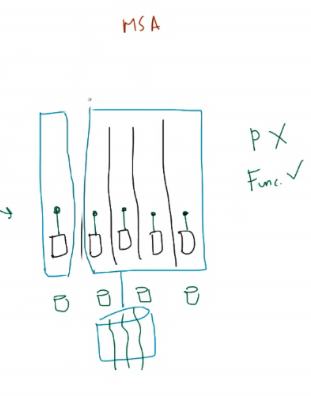 MSA
P X
Func. ✓